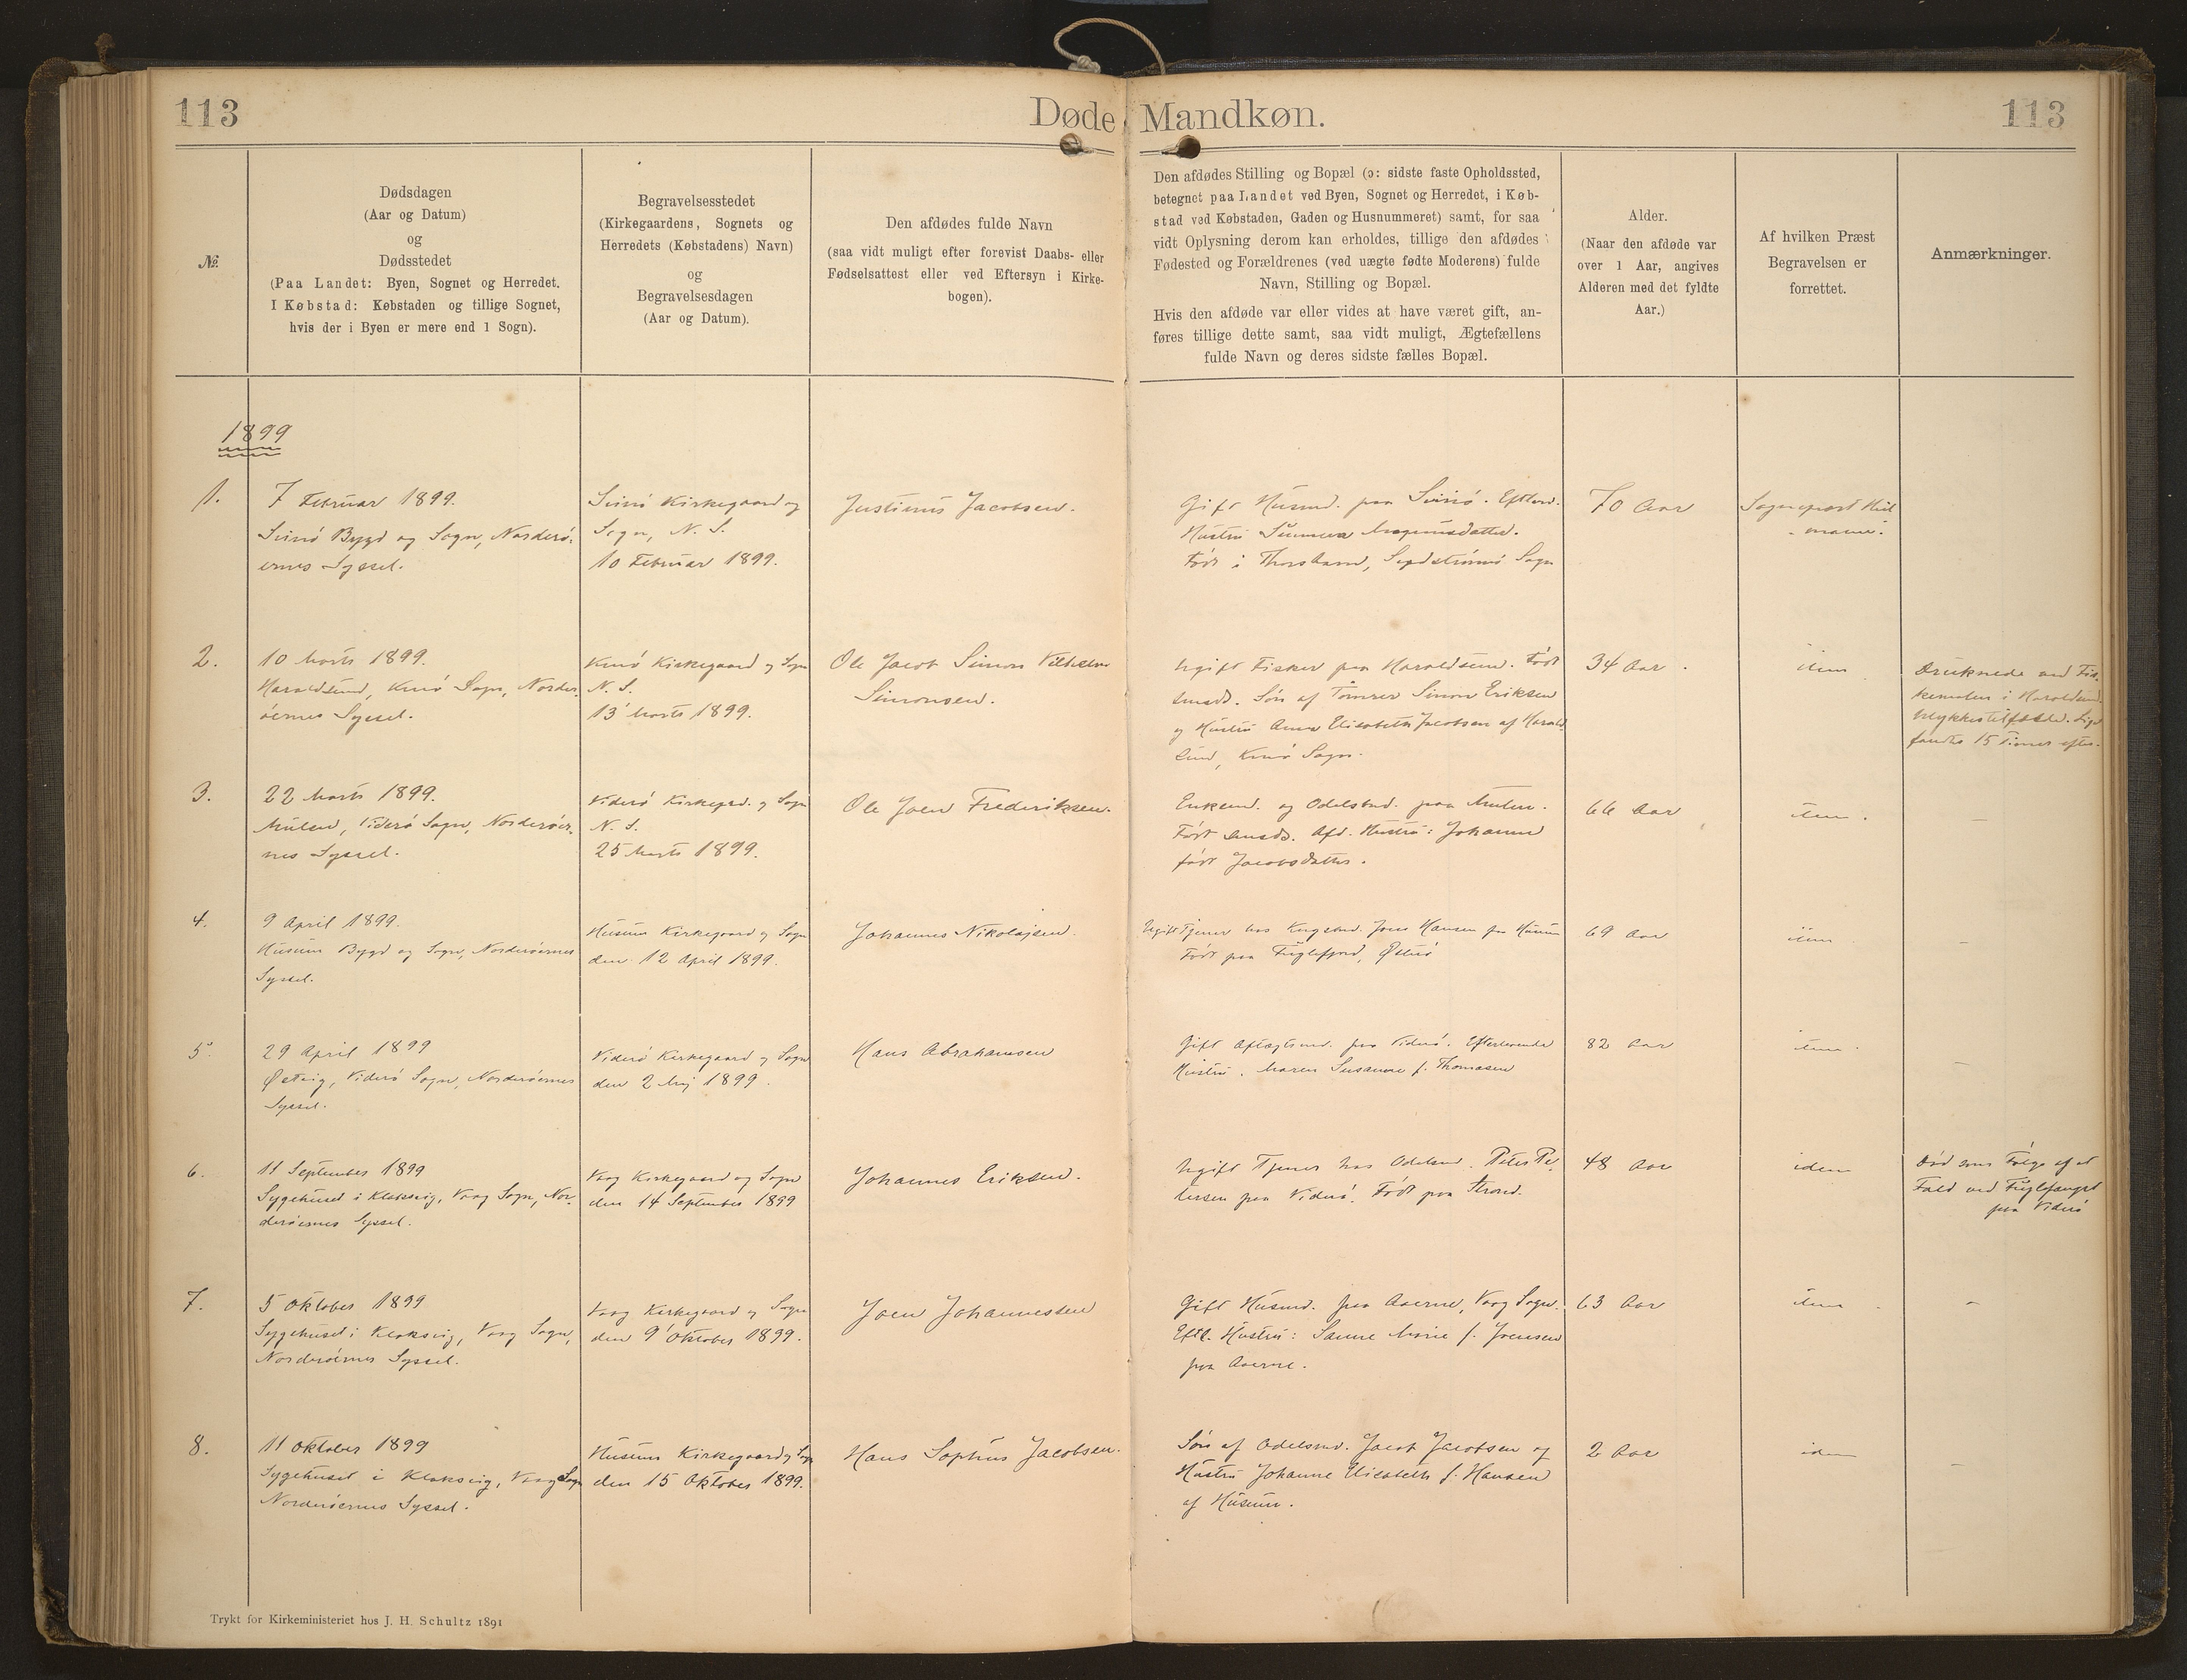 113
Døde Mandkøn.
113
№
Dødsdagen
(Aar og Datum)
og
Dødsstedet
(Paa Landet: Byen, Sognet og Herredet.
I Købstad: Købstaden og tillige Sognet,
hvis der i Byen er mere end 1 Sogn).
Begravelsesstedet
(Kirkegaardens, Sognets og
Herredets (Købstadens) Navn)
og
Begravelsesdagen
(Aar og Datum).
Den afdødes fulde Navn
(saa vidt muligt efter forevist Daabs- eller
Fødselsattest eller ved Eftersyn i Kirke-
bogen).
Den afdødes Stilling og Bopæl (ɔ: sidste faste Opholdssted,
betegnet paa Landet ved Byen, Sognet og Herredet, i Køb-
stad ved Købstaden, Gaden og Husnummeret) samt, for saa
vidt Oplysning derom kan erholdes, tillige den afdødes
Fødested og Forældrenes (ved uægte fødte Moderens) fulde
Navn, Stilling og Bopæl.
Hvis den afdøde var eller vides at have været gift, an-
føres tillige dette samt, saa vidt muligt, Ægtefællens
fulde Navn og deres sidste fælles Bopæl.
Alder.
(Naar den afdøde var
over 1 Aar, angives
Alderen med det fyldte
Aar.)
Af hvilken Præst
Begravelsen er
forrettet.
Anmærkninger.
1899
1.
7 Februar 1899.
Svinö Bygd og Sogn, Norderö-
ernes Syssel.
Svinö Kirkegaard og
Sogn, N. S.
10 Februar 1899.
Justinus Jacobsen.
Gift Husmd. paa Svinö. Efterl.
Hustru Sunneva Magnusdatter.
Födt i Thorshavn, Sydströmö Sogn
70 Aar
Sognepræst
2.
10 Marts 1899.
Haraldsund, Kunö Sogn, Norder-
öernes Syssel.
Kunö Kirkegaard og Sogn
N. S.
13 Marts 1899.
Ole Jacob Simon Vilhelm
Simonsen.
Ugift Fisker paa Haraldsund. Födt
smstds. Sön af Tömrer Simon Eriksen
og Hustru Anna Elisabeth Jacobsen af Harald-
sund, Kunö Sogn.
34 Aar.
idem
Druknede ved Fis-
keriet i Haraldsund.
Ulykkestilfælde. Liget
fandtes 15 Timer efter.
3.
22 Marts 1899.
Mulen, Viderö Sogn, Norderöer-
nes Syssel.
Viderö Kirkegrd. og Sogn
N. S.
25 Marts 1899.
Ole Joen Frederiksen.
Enkemd. og Odelsbnd. paa Mulen.
Födt smstds. Afd. Hustru: Johanne
födt Jacobsdatter.
66 Aar
idem.
–
4.
9 April 1899.
Husum Bygd og Sogn, Norderöernes
Syssel.
Husum Kirkegaard og Sogn
den 12 April 1899.
Johannes Nikolajsen.
Ugift Tjener hos Kongsbnd. Joen Hansen paa Husum
Födt paa Fuglefjord, Østerö
69 Aar
idem
–
5.
29 April 1899
Østvig, Viderö Sogn, Norderöernes
Syssel.
Viderö Kirkegaard og Sogn
den 2 Maj 1899.
Hans Abrahamsen
Gift Aftægtsmd. paa Viderö. Efterlevende
Hustru. Maren Susanne f. Thomasen
82 Aar
idem.
–
6.
11 September 1899
Sygehuset i Klaksvig, Vaag Sogn, Nor-
deröernes Syssel.
Vaag Kirkegaard og Sogn
den 14 September 1899
Johannes Eriksen.
Ugift Tjener hos Odelsmd. Peter Pe-
tersen paa Viderö. Födt paa Strond.
48 Aar
idem
Död som Fölge af et
Fald ved Fuglefangst
paa Viderö
7.
5 Oktober 1899
Sygehuset i Klaksvig, Vaag Sogn,
Norderöernes Syssel.
Vaag Kirkegaard og Sogn
den 9 Oktober 1899.
Joen Johannessen
Gift Husmd. paa Aaerne, Vaag Sogn.
Eftl. Hustru: Sanne Marie f. Joensen
paa Aaerne.
63 Aar
idem
–
8.
11 Oktober 1899
Sygehuset i Klaksvig, Vaag Sogn
Norderöernes Syssel.
Husum Kirkegaard og Sogn
den 15 Oktober 1899.
Hans Sophus Jacobsen.
Sön af Odelsmd. Jacob Jacobsen og
Hustru Johanne Elisabeth f. Hansen
af Husum.
2 Aar
idem
–
Trykt for Kirkeministeriet hos J. H. Schultz 1891